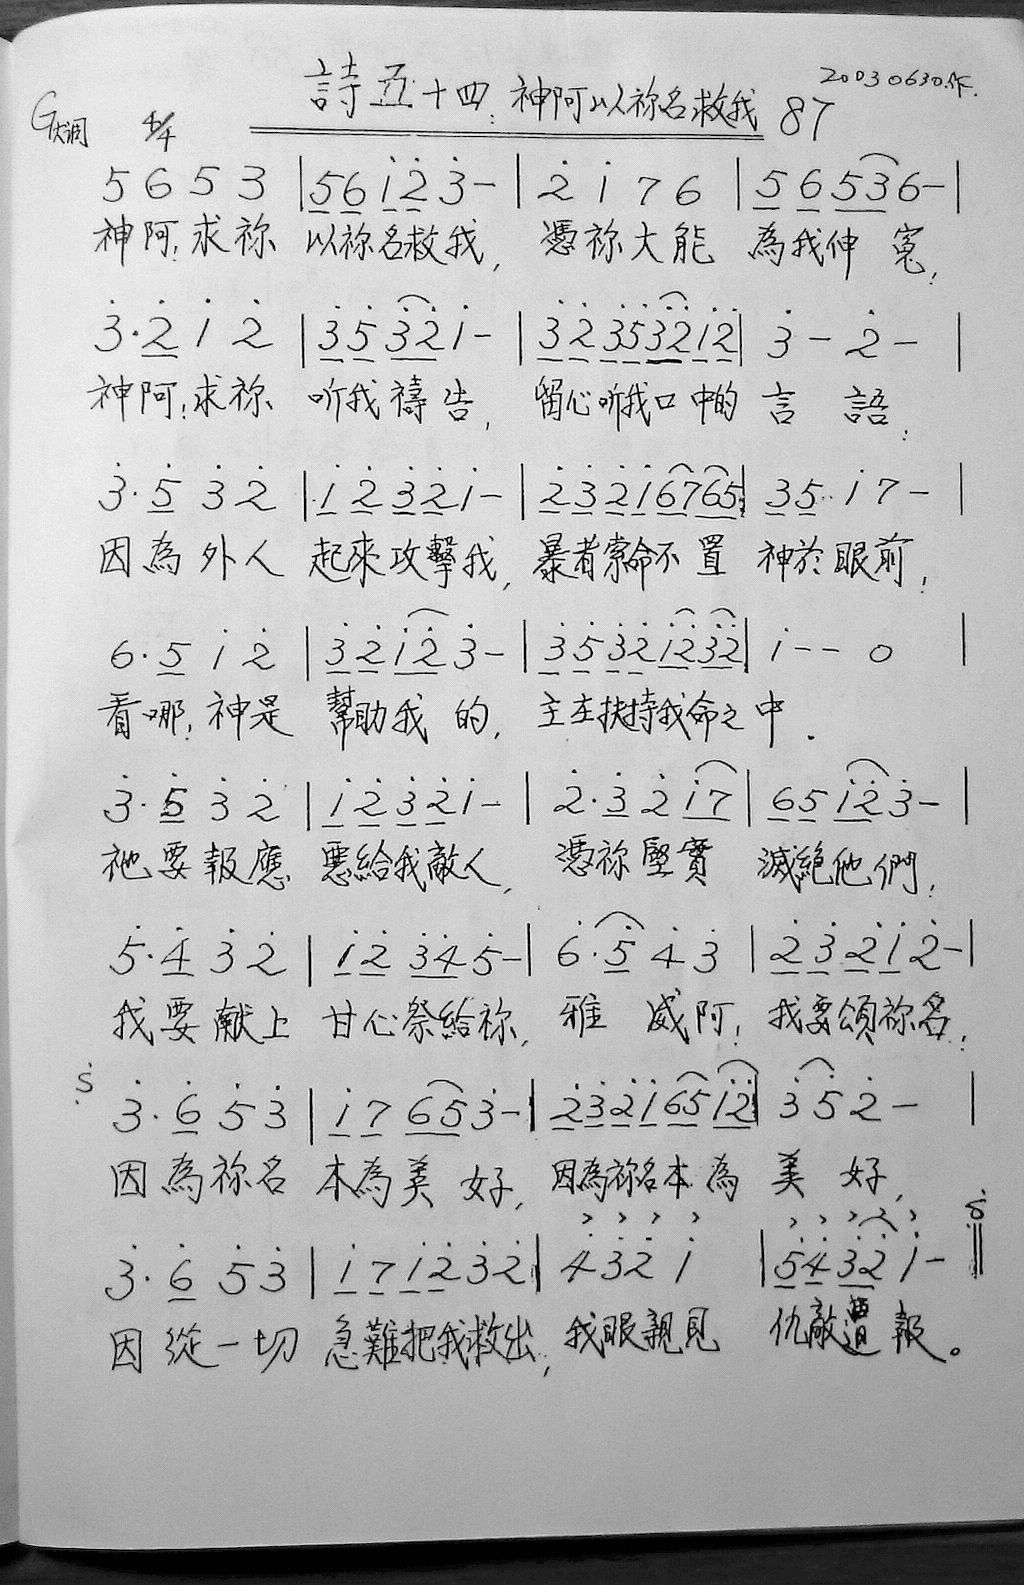 詩五十四:神阿以祢名救我 87 20030630作.
G大调 4/4
5 6 5 3 | 5 6 i̇ 2̇ 3̇ - | 2̇ i̇ 7 6 | 5 6 5 3 6 - |
神阿!求祢 以祢名救我, 憑祢大能 為我伸冤!
3̇·2̇ i̇ 2̇ | 3̇ 5̇ 3̇ 2̇ i̇ - | 3̇ 2̇ 3̇ 5̇ 3̇ 2̇ i̇ 2̇ | 3̇ - 2̇ - |
神阿!求祢 听我禱告, 留心听我口中的言語!
3̇·5̇ 3̇ 2̇ | i̇ 2̇ 3̇ 2̇ i̇ - | 2̇ 3̇ 2̇ i̇ 6 7 6 5 | 3 5 i̇ 7 - |
因為外人 起來攻擊我, 暴者索命不置 神於眼前!
6·5 i̇ 2̇ | 3̇ 2̇ i̇ 2̇ 3̇ - | 3̇ 5̇ 3̇ 2̇ i̇ 2̇ 3̇ 2̇ | i̇ - - 0 |
看哪!神是 幫助我的, 主在扶持我命之中.
3̇·5̇ 3̇ 2̇ | i̇ 2̇ 3̇ 2̇ i̇ - | 2̇·3̇ 2̇ i̇ 7 | 6 5 i̇ 2̇ 3̇ - |
祂要報應 惡給我敵人, 憑祢堅實 滅絕他們!
5̇·4̇ 3̇ 2̇ | i̇ 2̇ 3̇ 4̇ 5̇ - | 6̇·5̇ 4̇ 3̇ | 2̇ 3̇ 2̇ i̇ 2̇ - |
我要献上 甘心祭給祢, 雅威阿!我要頌祢名!
3̇·6̇ 5̇ 3̇ | i̇ 7 6 5 3̇ - | 2̇ 3̇ 2̇ i̇ 6 5 i̇ 2̇ | 3̇ 5̇ 2̇ - |
因為祢名 本為美好, 因為祢名本為 美好,
3̇·6̇ 5̇ 3̇ | i̇ 7 i̇ 2̇ 3̇ 2̇ | 4̇ 3̇ 2̇ i̇ | 5̇ 4̇ 3̇ 2̇ i̇ - ||
因從一切 急難把我救出, 我眼親見 仇敵遭報。